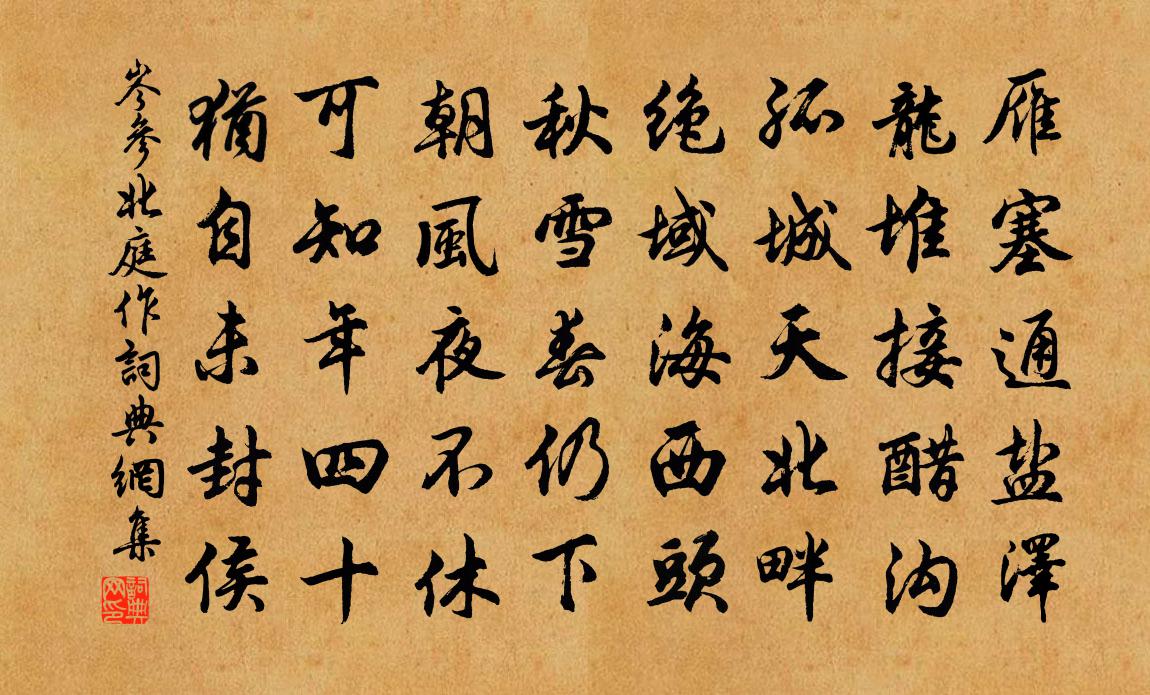 雁塞通盐澤
龍堆接醋沟
孤城天北畔
绝域海西頭
秋雪春仍下
朝風夜不休
可知年四十
猶自未封侯
岑参北庭作詞典網集
詞典
网印